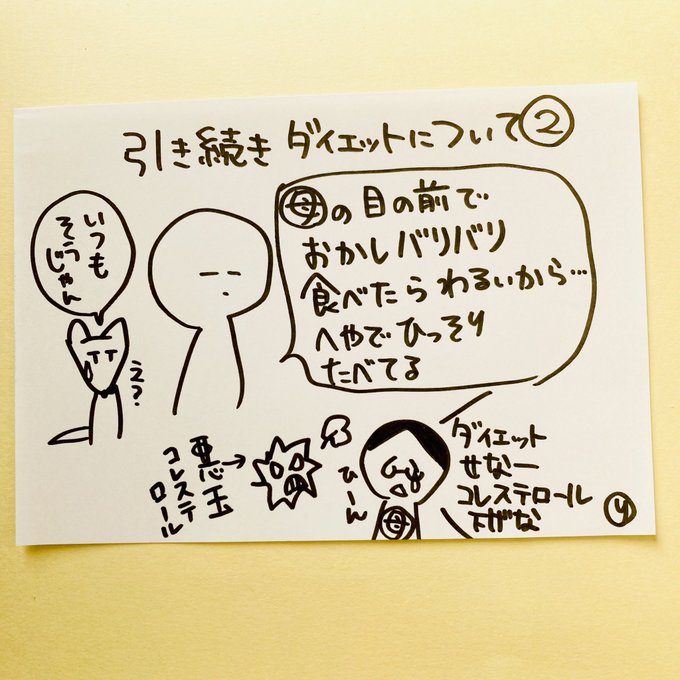 引き続き ダイエットについて②
母の目の前で
おかしバリバリ
食べたら わるいから…
へやで ひっそり
たべてる
いつも
そうじゃん
え?
悪玉→
コレステ
ロール
ひーん
母
ダイエット
せなー
コレステロール
下げな
y